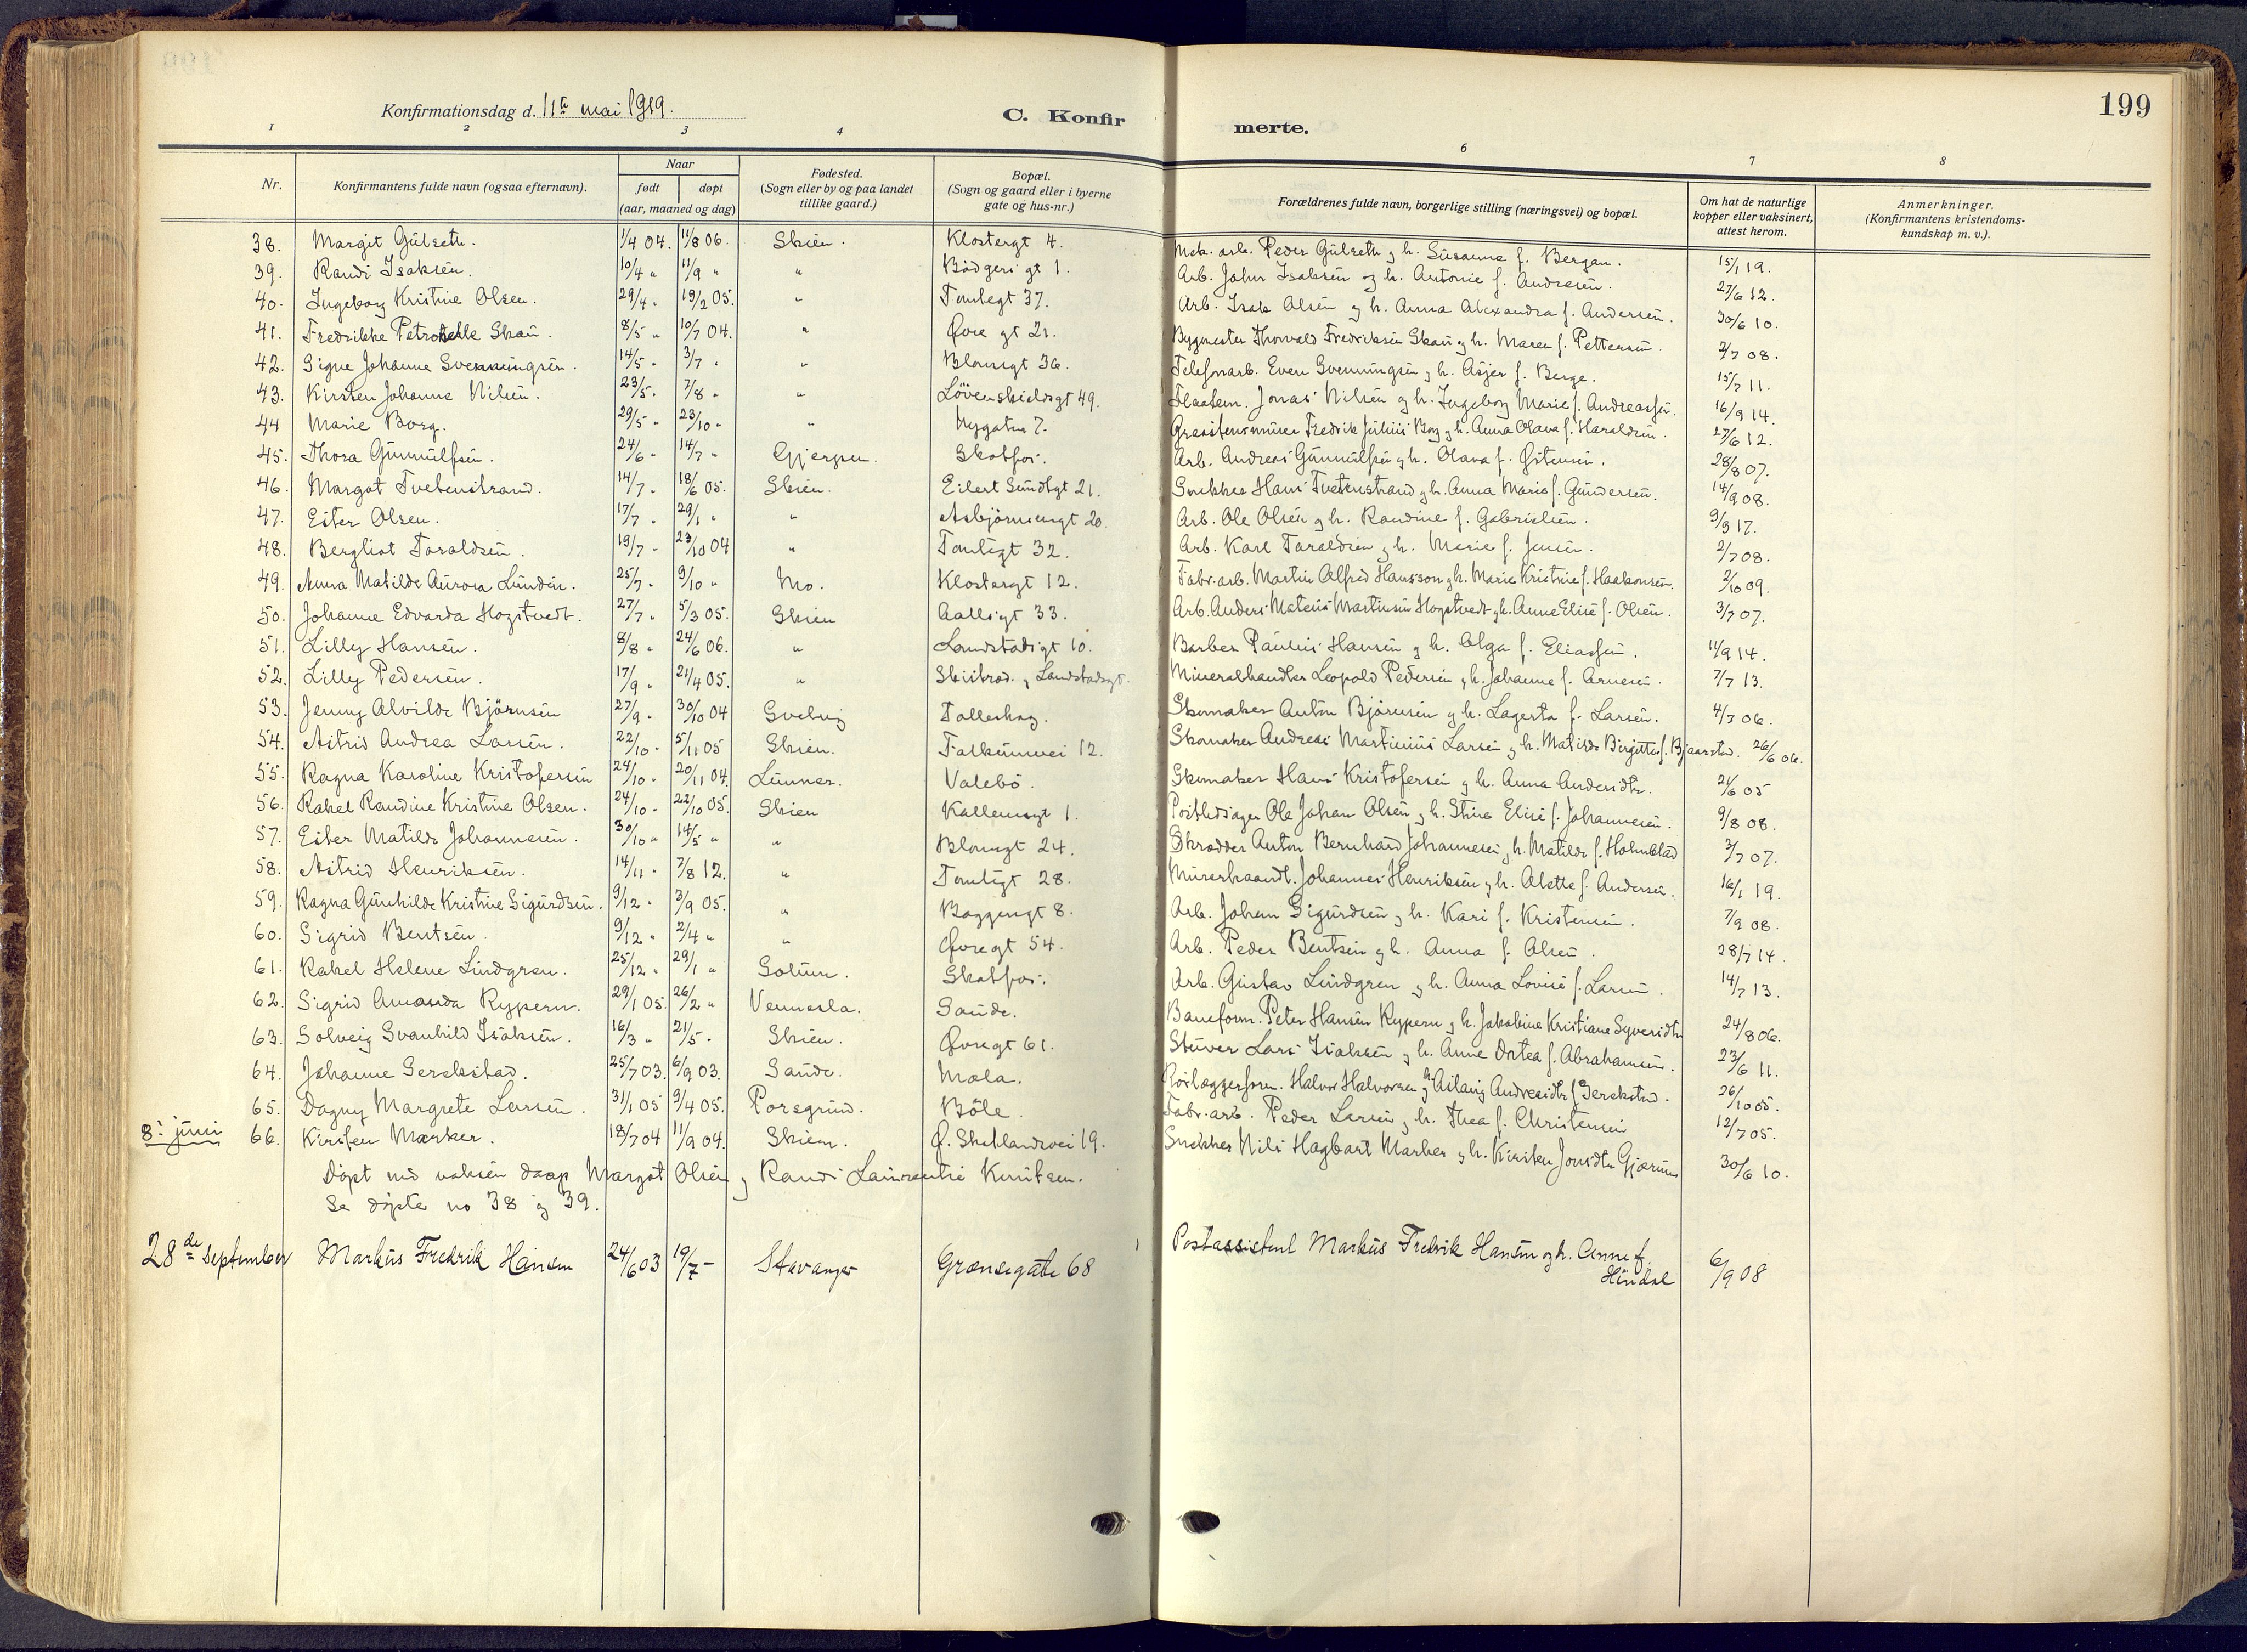 199
Konfirmationsdag d. 11te mai 1919.
C. Konfirmerte.
1 2 3 4 6 7 8
Nr.
Konfirmantens fulde navn (ogsaa efternavn).
Naar
født døpt
(aar, maaned og dag)
Fødested.
(Sogn eller by og paa landet
tillike gaard.)
Bopæl.
(Sogn og gaard eller i byerne
gate og hus-nr.)
Forældrenes fulde navn, borgerlige stilling (næringsvei) og bopæl.
Om hat de naturlige
kopper eller vaksinert,
attest herom.
Anmerkninger.
(Konfirmantens kristendoms-
kundskap m. v.).
38. Margit Gulseth. 1/4 04. 11/8 06. Skien. Klostergt 4. Mek. arb. Peder Gulseth og h. Susanna f. Bergan. 15/1 19.
39. Randi Isaksen. 10/4 " 11/9 " " Bödgers gt 1. Arb. John Isaksen og h. Antonie f. Andresen. 27/6 12.
40. Ingeborg Kristine Olsen. 29/4 " 19/2 05. " 37. Arb. Isak Olsen og h. Anna Alexandra f. Andersen. 30/6 10.
41. Fredrikke Petronelle Skau. 8/5 " 10/7 04. " Øvre gt 21. Bygmester Thorvald Fredriksen Skau og h. Maren f. Pettersen. 2/7 08.
42. Signe Johanne Svenningsen. 14/5 " 3/7 " " Blomsgt 36. Telefonarb. Even Svenningsen og h. Asjer f. Berge. 15/7 11.
43. Kirsten Johanne Nilsen. 23/5 " 7/8 " " Lövenskioldsgt 49. Jonas Nilsen og h. Ingeborg Marie f. Andreassen. 16/9 14.
44 Marie Borg. 29/5 " 23/10 " " Nygaten 7. Fredrik Julius Borg og h. Anna Olava f. Haraldsen. 27/6 12.
45. Thora Gunnulfsen. 24/6 " 14/7 " Gjerpen. Skotfos. Arb. Andreas Gunnulfsen og h. Olava f. Østensen. 28/8 07.
46. Margot Tvetenstrand. 14/7 " 18/6 05. Skien. Eilert Sundtgt 21. Snekker Hans Tvetenstrand og h. Anna Marie f. Gundersen. 14/9 08.
47. Ester Olsen. 17/7 " 29/1 " " Asbjörnsensgt 20. Arb. Ole Olsen og h. Randine f. Gabrielsen. 9/9 17.
48. Bergliot Taraldsen. 19/7 " 23/10 04 " 32. Arb. Karl Taraldsen og h. Marie f. Jensen. 2/7 08.
49. Anna Matilde Aurora Lunden. 25/7 " 9/10 " Mo. Klostergt 12. Fabr. arb. Martin Alfred Hansson og h. Marie Kristine f. Haakonsen. 2/10 09.
50. Johanne Edvarda Hogstvedt. 27/7 " 5/3 05. Skien Aallsgt 33. Arb. Anders Mateus Martinsen Hogstvedt og h. Anne Elise f. Olsen. 3/7 07.
51. Lilly Hansen. 8/8 " 24/6 06. " Landstadsgt 10. Barber Paulus Hansen og h. Olga f. Eliassen. 11/9 14.
52. Lilly Pedersen. 17/9 " 21/4 05. " Skistred. og Landstadsgt. Mineralhandler Leopold Pedersen og h. Johanne f. Arnesen. 7/7 13.
53. Jenny Alvilde Björnsen 27/9 " 30/10 04 Svelvig Follestag. Skomaker Anton Björnsen og h. Lagerta f. Larsen. 4/7 06.
54. Astrid Andrea Larsen. 22/10 " 5/11 05 Skien. Falkumvei 12. Skomaker Andreas Martinius Larsen og h. Matilde Birgitte f. Bjaarstad. 26/6 06.
55. Ragna Karoline Kristofersen 24/10 " 20/11 04. Lunner. Valebö. Skomaker Hans Kristofersen og h. Anna Andersdtr. 21/6 05
56. Rakel Randine Kristine Olsen. 24/10 " 22/10 05. Skien Kallemsgt 1. Postledsager Ole Johan Olsen og h. Stina Elise f. Johannesen. 9/8 08.
57. Ester Matilde Johannesen. 30/10 " 14/5 " " Blomsgt 24. Skrædder Anton Bernhard Johannesen og h. Matilde f. Holmblad 3/7 07.
58. Astrid Henriksen. 14/11 " 7/8 12. " 28. Murerhaandl. Johannes Henriksen og h. Alette f. Andersen. 16/1 19.
59. Ragna Gunhilde Kristine Sigurdsen. 9/12 " 3/9 05. " Baggensgt 8. Arb. Johan Sigurdsen og h. Kari f. Kristensen. 7/9 08.
60. Sigrid Bentsen. 9/12 " 2/4 " " Øvregt 54. Arb. Peder Bentsen og h. Anna f. Olsen. 28/7 14.
61. Rakel Helene Lindgren. 25/12 " 29/1 " Solum. Skotfos. Arb. Gustav Lindgren og h. Anna Lovise f. Larsen. 14/7 13.
62. Sigrid Amanda Rypern. 29/1 05. 26/2 " Vennesla. Sande. Baneform. Peter Hansen Rypern og h. Jakobine Kristiane Syversdtr 24/8 06.
63. Solveig Svanhild Isaksen. 16/3 " 21/5 " Skien. Øvregt 61. Stuver Lars Isaksen og h. Anne Dortea f. Abrahamsen. 23/6 11.
64. Johanne Gerekstad. 25/7 03. 6/9 03. Sande. Mæla. Rörlæggerform. Halvor Halvorsen og h. Aslaug Andreasdtr f. Gerekstad. 26/10 05.
65. Dagny Margrete Larsen. 31/1 05 9/4 05. Porsgrund. Böle. Fabr. arb. Peder Larsen og h. Thea f. Christensen 12/7 05.
8: juni 66. Kirsten Marker. 18/7 04 11/9 04. Skien. Ø. Skotlandsvei 19. Snekker Nils Hagbart Marker og h. Kirsten Jonsdtr Gjærum 30/6 10.
Døpt ved voksen daap Margot Olsen og Randi Laurentie Knutsen.
Se døpte no 38 og 39.
28de september Markus Fredrik Hansen 24/6 03 19/7 - Stavanger Grænsegate 68 Postassistent Markus Fredrik Hansen og h. Anne f. Hindal 6/9 08